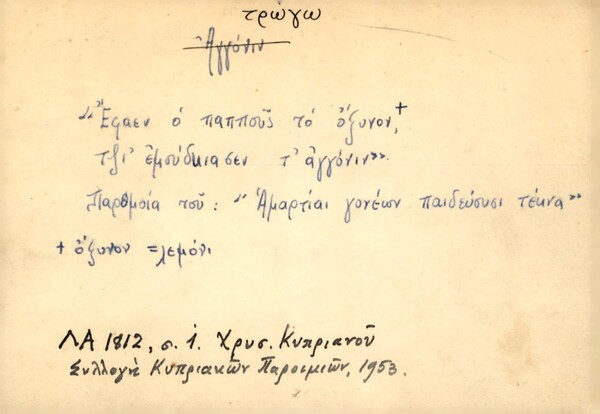 τρώγω
Ἀγγόνιν
"Ἔφαεν ὁ παπποῦς τὸ ὄξυνον,+
τζι' ἐμούδκιασεν τ' ἀγγόνιν».
Παρθμοία τοῦ: "Ἁμαρτίαι γονέων παιδεύουσι τέκνα»
+ ὄξυνον = λεμόνι
ΛΑ 1812, σ. 1. Χρυσ. Κυπριανοῦ
Συλλογὴ Κυπριακῶν Παροιμιῶν, 1953.